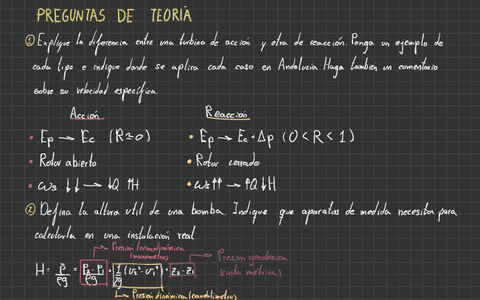 PREGUNTAS DE TEORÍA
① Explique la diferencia entre una turbina de acción y otra de reacción. Ponga un ejemplo de
cada tipo e indique donde se aplica cada caso en Andalucia Haga tambien un comentario
sobre su velocidad específica.
Acción Reacción
• Ep → Ec (R≃0) • Ep → Ec + Δp (0 < R < 1)
• Rotor abierto • Rotor cerrado
• ωs ↓↓ → ↓Q ↑H • ωs ↑↑ → ↑Q ↓H
② Defina la altura util de una bomba. Indique que aparatos de medida necesita para
calcularla en una instalación real
Presión termodinámica
(manometro)
Presión geodésica
(cinta métrica)
H = P/ρg = P2 - P1/ρg + 1/2g (U2² - U1²) + z2 - z1
Presión dinámica (caudalimetro)